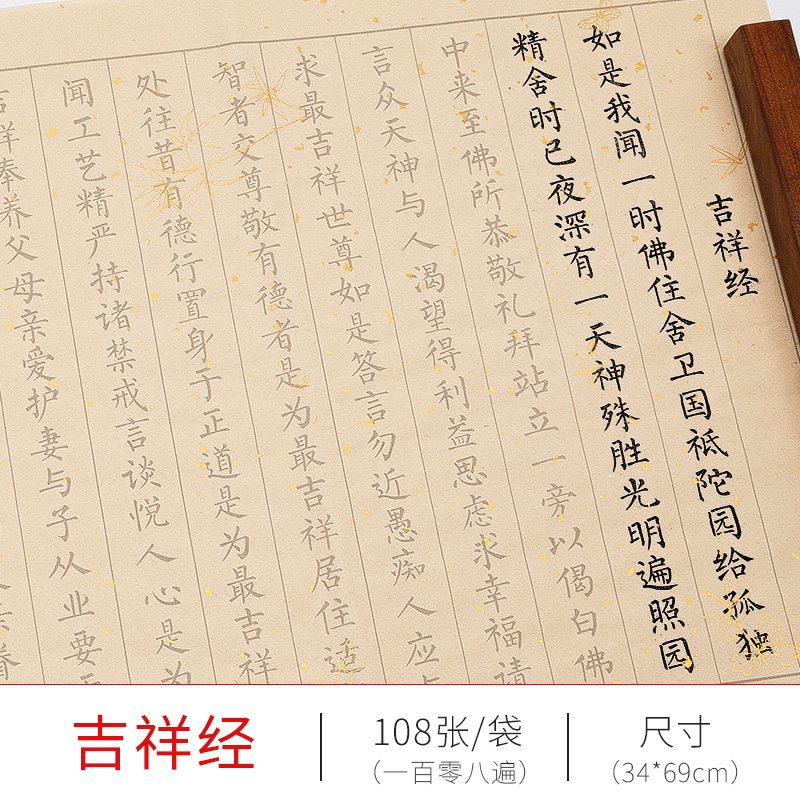 吉祥经
如是我闻一时佛住舍卫国祗陀园给孤独
精舍时已夜深有一天神殊胜光明遍照园
中来至佛所恭敬礼拜站立一旁以偈白佛
言众天神与人渴望得利益思虑求幸福请
求最吉祥世尊如是答言勿近愚痴人应与
智者交尊敬有德者是为最吉祥居住适
处往昔有德行置身于正道是为最吉祥
闻工艺精严持诸禁戒言谈悦人心是为
吉祥奉养父母亲爱护妻与子从业要
吉祥经
108张/袋
(一百零八遍)
尺寸
(34*69cm)